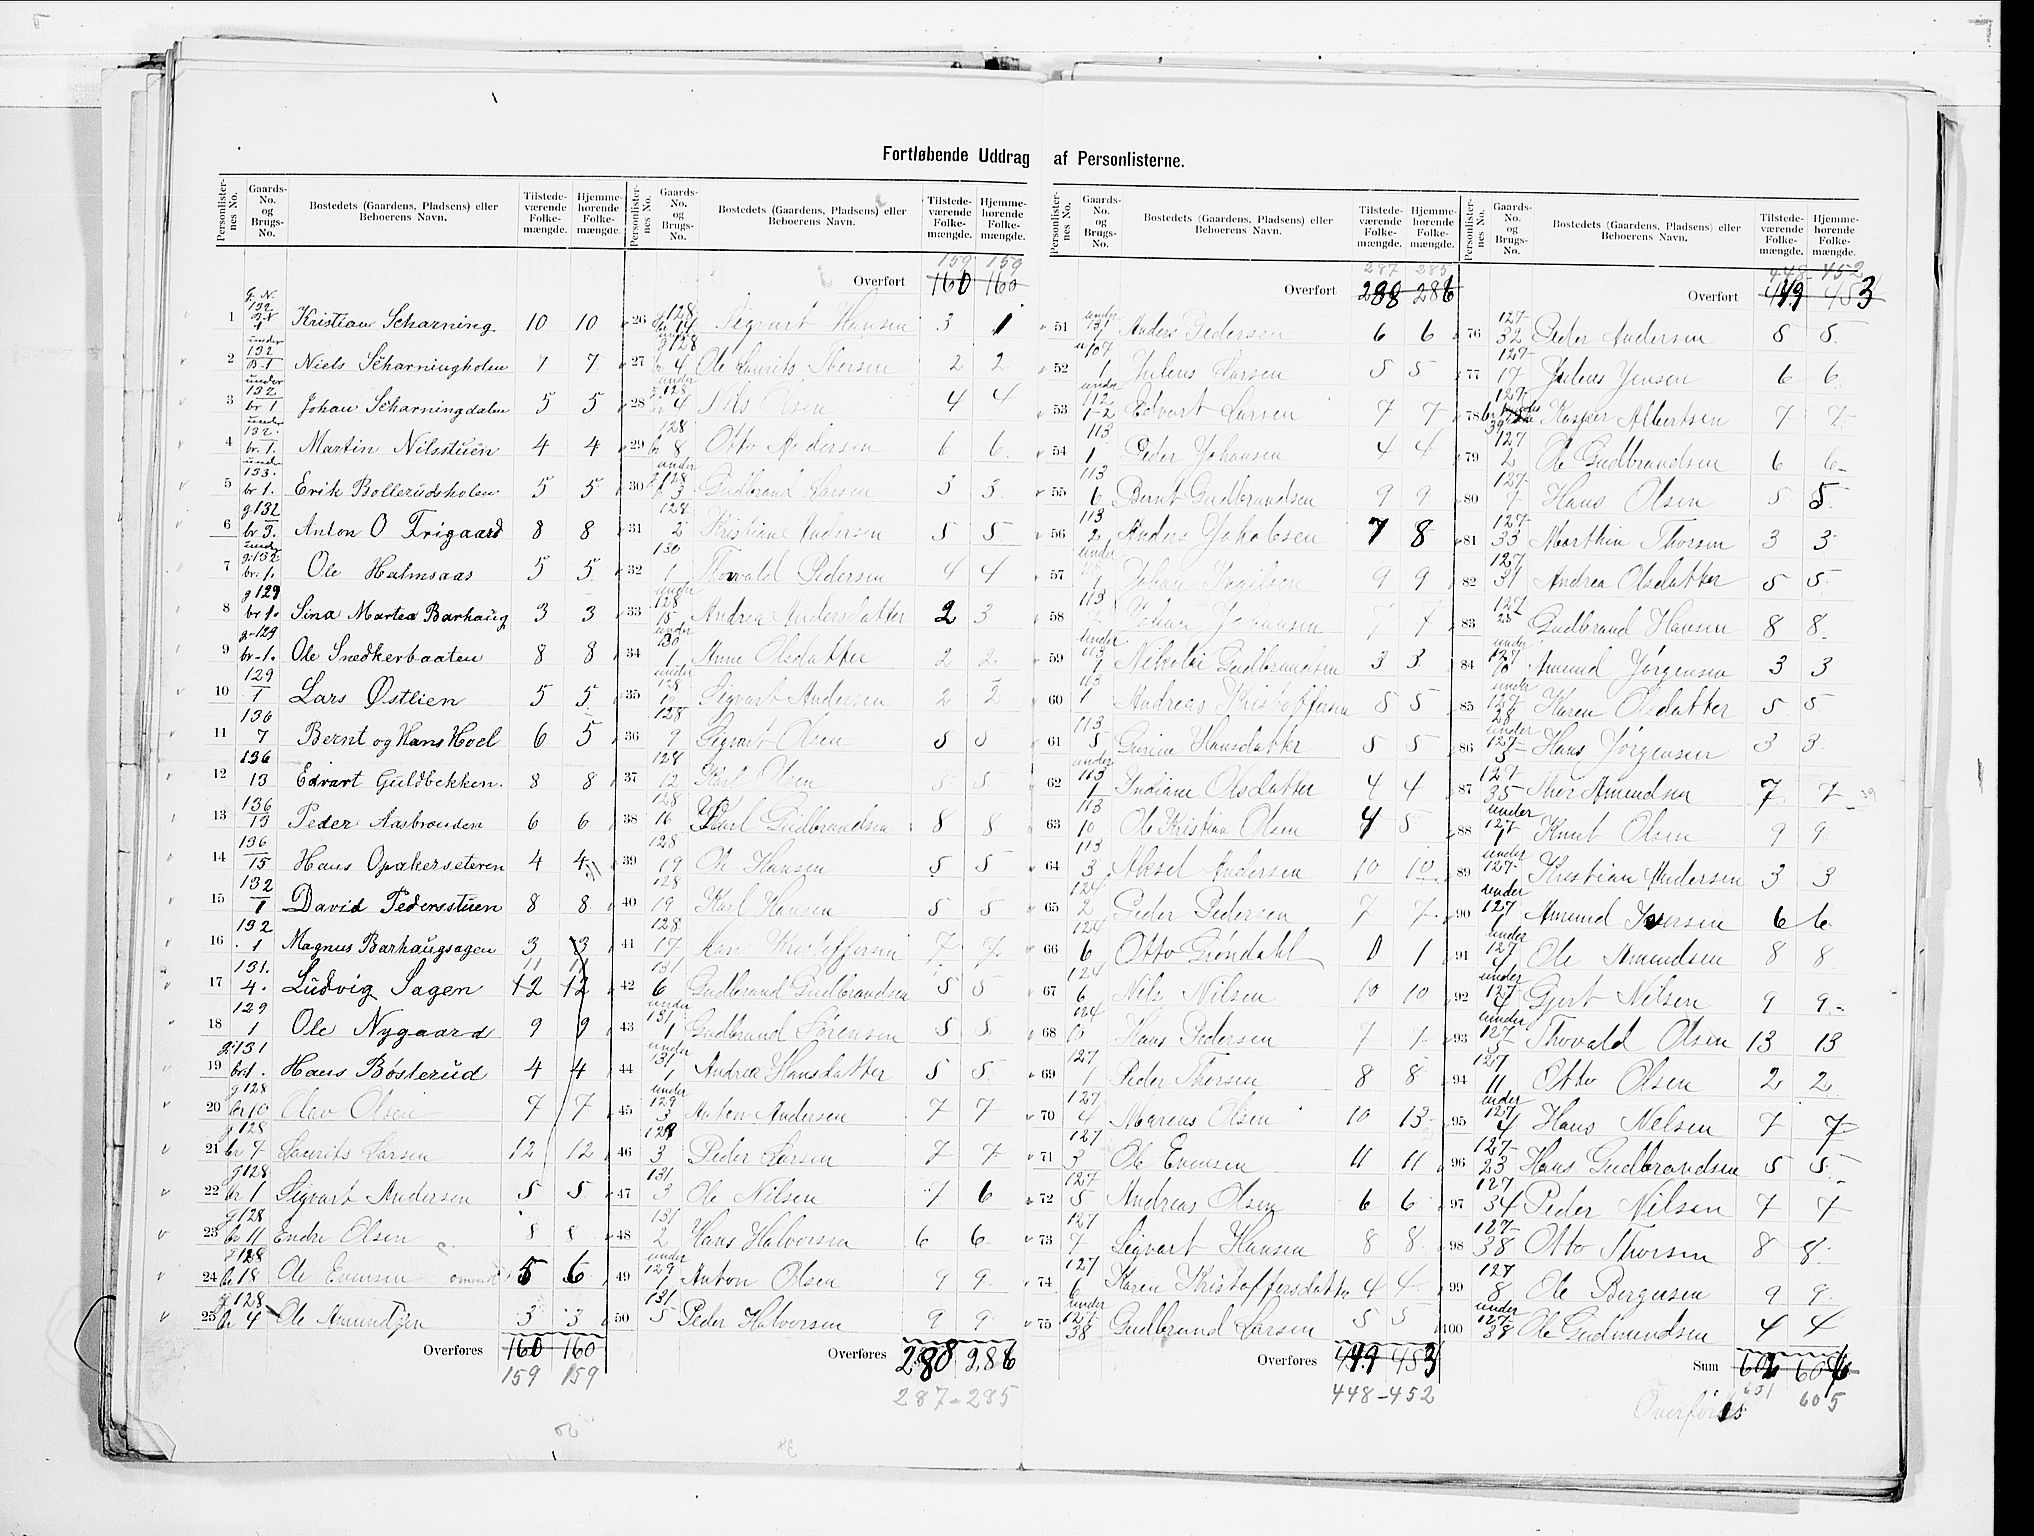 Fortløbende Uddrag af Personlisterne.
Personlister-nes No. Gaards-No. og Brugs-No. Bostedets (Gaardens, Pladsens) eller Beboerens Navn. Tilstede-værende Folke-mængde. Hjemme-hørende Folke-mængde.
1 Kristian Scharning 10 10
2 under 132 B. 1 Niels Scharningholen 7 7
3 under 132 br 1 Johan Scharningdalen 5 5
4 under 132. br. 1. Martin Nilsstuen 4 4
5 under 133. br 1. Erik Bollerudsholen 5 5
6 g 132 br 3. Anton O Frigaard 8 8
7 under g. 132. br. 1. Ole Halmsaas 5 5
8 g 129 br 1. Sina Martea Barhaug 3 3
9 g 129 br 1. Ole Snedkerbaaten 8 8
10 129 1 Lars Østlien 5 5
11 136 7 Bernt og Hans Hoel 6 5
12 136 13 Edvart Guldbekken. 8 8
13 136 19 Peder Aasbraaden 6 6
14 136 15 Hans Opakerseteren 4 4
15 132 1 David Pedersstuen 8 8
16 132 1 Magnus Barhaugsagen 3 3
11 11
17 131. 4. Ludvig Sagen 12 12
18 129 1 Ole Nygaard 9 9
19 g. 131 br 1. Hans Bøsterud 4 4
20 g 128 br 10 Olav Olsen 7 7
21 g 128 br 7 Laurits Larsen 12 12
22 g 128 br 1 Sigvart Andersen 5 5
23 g 128 br 11 Endre Olsen 8 8
24 g 128 br 18 Ole Evensen 5 6
25 g 128 br 4 Ole Amundsen 3 3
Overføres 160 160
159 159
Personlister-nes No. Gaards-No. og Brugs-No. Bostedets (Gaardens, Pladsens) eller Beboerens Navn. Tilstede-værende Folke-mængde. Hjemme-hørende Folke-mængde.
159 159
Overført 160 160
26 128 br 14 Sigvart Hansen 3 1
27 under 128 br 4 Ole Laurits Thorsen 2 2
28 under 128 br 4 Nils Olsen 4 4
29 128 br 8 Otto Andersen 6 6
30 under 128 br 3 Gudbrand Larsen 3 3
31 128 2 Kristian Andersen 5 5
32 130 1 Thorvald Pedersen 4 4
33 under 128 15 Andrea Andersdatter 2 3
34 under 130 1 Anne Olsdatter 2 2
35 under 128 1 Sigvart Andersen 2 2
36 128 9 Sigvart Olsen 5 5
37 128 12 Karl Olsen 5 5
38 128 16 Karl Gudbrandsen 8 8
39 128 19 Ole Hansen 5 5
40 128 19 Karl Hansen 5 5
41 128 17 Kristoffersen 7 7
42 131 6 Gudbrand Gudbrandsen 5 5
43 under 131 1 Gudbrand Sørensen 5 5
44 under 131 1 Andrea Hansdatter 5 5
45 under 129 3 Anton Andersen 7 7
46 128 3 Peder Larsen 7 7
47 131 3 Ole Nilsen 7 6
48 131 2 Hans Halvorsen 6 6
49 under 129 1 Anton Olsen 9 9
50 131 5 Peder Halvorsen 9 9
Overføres 288 286
287 - 285
Personlister-nes No. Gaards-No. og Brugs-No. Bostedets (Gaardens, Pladsens) eller Beboerens Navn. Tilstede-værende Folke-mængde. Hjemme-hørende Folke-mængde.
287 285
Overført 288 286
51 under 131 1 Anders Pedersen 6 6
52 107 1 Julius Larsen 5 5
53 under 112 1-2 Edvart Larsen 7 7
54 113 1 Peder Johansen 4 4
55 113 6 Bernt Gudbrandsen 9 9
56 113 2 Anders Jakobsen 7 8
57 under 1 Johan Ingilsen 9 9
58 113 Johan Johansen 7 7
59 under 113 1 Nikolai Gudbrandsen 3 3
60 113 1 Andreas Kristoffersen 5 5
61 113 5 Gurine Hansdatter 5 5
62 under 113 1 Indiane Olsdatter 4 4
63 113 10 Ole Kristian Olsen 4 5
64 113 3 Aksel Andersen 10 10
65 124 2 Peder Pedersen 7 7
66 124 6 Otto Grøndahl 0 1
67 124 6 Nils Nilsen 10 10
68 124 10 Hans Pedersen 7 7
69 127 1 Peder Thorsen 8 8
70 127 4 Marius Olsen 10 13
71 127 3 Ole Evensen 11 11
72 127 5 Andreas Olsen 6 6
73 127 7 Sigvart Hansen 8 8
74 127 6 Karen Kristoffersdatter 4 4
75 under 127 38 Gudbrand Larsen 5 5
Overføres 449 453
448 - 452
Personlister-nes No. Gaards-No. og Brugs-No. Bostedets (Gaardens, Pladsens) eller Beboerens Navn. Tilstede-værende Folke-mængde. Hjemme-hørende Folke-mængde.
448 - 452
Overført 449 453
76 127 32 Peder Andersen 8 8
77 127 17 Julius Jensen 6 6
78 127 39 Kasper Albertsen 7 7
79 127 2 Ole Gudbrandsen 6 6
80 127 7 Hans Olsen 5 5
81 127 33 Marthin Thorsen 3 3
82 127 31 Andrea Olsdatter 5 5
83 127 25 Gudbrand Hansen 8 8
84 under 127 10 Amund Jørgensen 3 3
85 under 127 28 Karen Olsdatter 5 5
86 under 127 5 Hans Jørgensen 3 3
87 127 35 Thor Amundsen 7 7
88 under 127 1 Knut Olsen 9 9
89 under 127 Kristian Andersen 3 3
90 under 127 1 Amund Iversen 6 6
91 under 127 1 Ole Amundsen 8 8
92 under 127 4 Gjert Nilsen 9 9
93 under 127 5 Thorvald Olsen 13 13
94 127 11 Otto Olsen 2 2
95 under 127 4 Hans Nelsen 7 7
96 127 23 Hans Gudbrandsen 5 5
97 127 34 Peder Nilsen 7 7
98 127 38 Otto Thorsen 8 8
99 127 8 Ole Bergersen 9 9
100 under 127 38 Ole Gudmundsen 4 4
Sum 602 606
601 605
Overføres